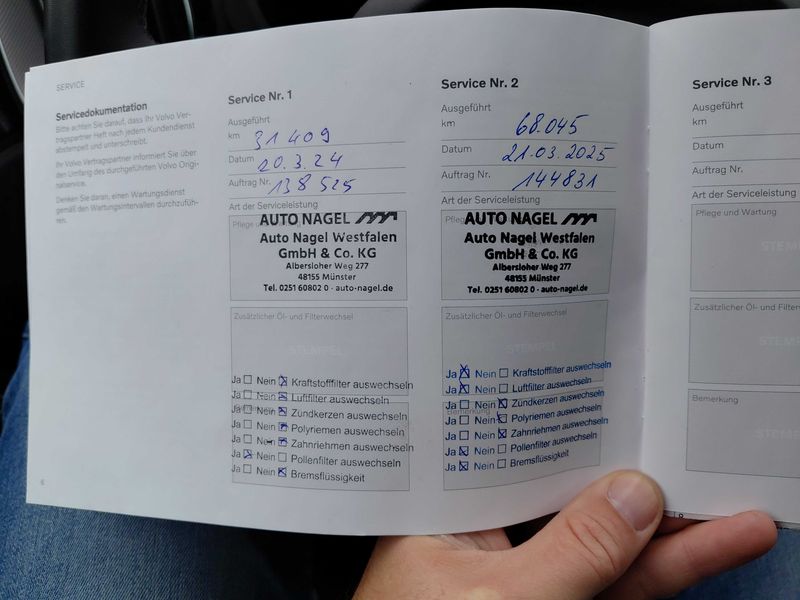 SERVICE
Servicedokumentation
Bitte achten Sie darauf, dass Ihr Volvo Ver-
tragspartner Heft nach jedem Kundendienst
abstempelt und unterschreibt.
Ihr Volvo Vertragspartner informiert Sie über
den Umfang des durchgeführten Volvo Origi-
nalservice.
Denken Sie daran, einen Wartungsdienst
gemäß den Wartungsintervallen durchzufüh-
ren.
6
Service Nr. 1
Ausgeführt
km 31 409
Datum 20.3.24
Auftrag Nr. 138 525
Art der Serviceleistung
Pflege und Wartung
AUTO NAGEL
Auto Nagel Westfalen
GmbH & Co. KG
Albersloher Weg 277
48155 Münster
Tel. 0251 60802 0 · auto-nagel.de
Zusätzlicher Öl- und Filterwechsel
STEMPEL
Ja ☐ Nein ☒ Kraftstofffilter auswechseln
Ja ☐ Nein ☒ Luftfilter auswechseln
Ja ☐ Nein ☒ Zündkerzen auswechseln
Ja ☐ Nein ☒ Polyriemen auswechseln
Ja ☐ Nein ☒ Zahnriehmen auswechseln
Ja ☒ Nein ☐ Pollenfilter auswechseln
Ja ☐ Nein ☒ Bremsflüssigkeit
Service Nr. 2
Ausgeführt
km 68.045
Datum 21.03.2025
Auftrag Nr. 144831
Art der Serviceleistung
AUTO NAGEL
Auto Nagel Westfalen
GmbH & Co. KG
Albersloher Weg 277
48155 Münster
Tel. 0251 60802 0 · auto-nagel.de
Zusätzlicher Öl- und Filterwechsel
STEMPEL
Ja ☒ Nein ☐ Kraftstofffilter auswechseln
Ja ☒ Nein ☐ Luftfilter auswechseln
Bemerkung
Ja ☐ Nein ☒ Zündkerzen auswechseln
Ja ☐ Nein ☒ Polyriemen auswechseln
Ja ☐ Nein ☒ Zahnriehmen auswechseln
Ja ☒ Nein ☐ Pollenfilter auswechseln
Ja ☒ Nein ☐ Bremsflüssigkeit
Service Nr. 3
Ausgeführt
km
Datum
Auftrag Nr.
Art der Serviceleistung
Pflege und Wartung
Zusätzlicher Öl- und Filterwechsel
Bemerkung